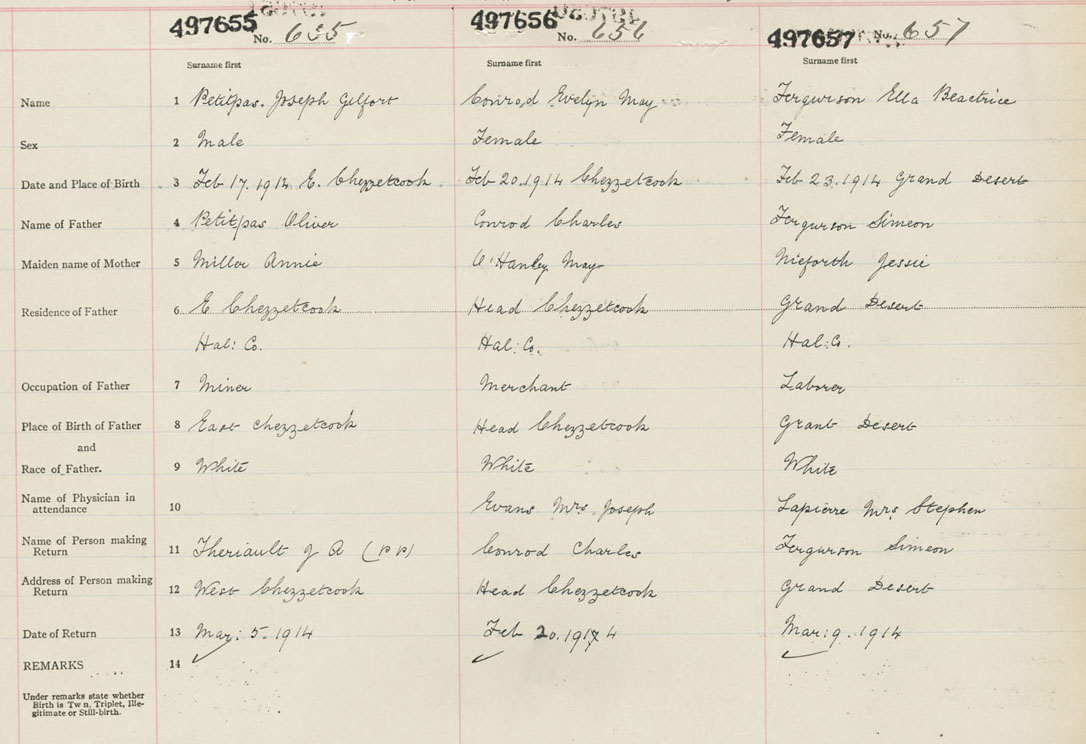 497655 No. 655 497656 No. 656 497657 No. 657
Surname first Surname first Surname first
Name 1 Petitpas. Joseph Gilfort Conrod Evelyn May Fergurson Ella Beactrice
Sex 2 Male Female Female
Date and Place of Birth 3 Feb 17. 1914 E. Chezzetcook Feb 20. 1914 Chezzetcook Feb 23. 1914 Grand Desert
Name of Father 4 Petitpas Oliver Conrod Charles Fergurson Simeon
Maiden name of Mother 5 Miller Annie O'Hanley May Nieforth Jessie
Residence of Father 6 E Chezzetcook Head Chezzetcook Grand Desert
Hal: Co. Hal: Co. Hal: Co.
Occupation of Father 7 Miner Merchant Laborer
Place of Birth of Father 8 East Chezzetcook Head Chezzetcook Grant Desert
and
Race of Father. 9 White White White
Name of Physician in
attendance 10 Evans Mrs Joseph Lapierre Mrs Stephen
Name of Person making
Return 11 Theriault J A (P P) Conrod Charles Fergurson Simeon
Address of Person making
Return 12 West Chezzetcook Head Chezzetcook Grand Desert
Date of Return 13 Mar: 5. 1914 Feb 20. 1914 Mar: 9. 1914
REMARKS 14
Under remarks state whether
Birth is Tw n, Triplet, Ille-
gitimate or Still-birth.